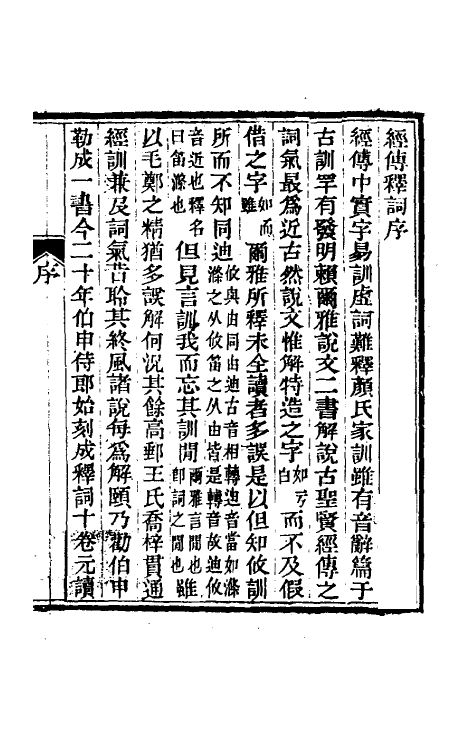 經傳釋詞序
經傳中實字易訓虛詞難釋顏氏家訓雖有音辭篇于
古訓罕有發明賴爾雅說文二書解說古聖賢經傳之
詞氣最爲近古然說文惟解特造之字如亏白而不及假
借之字如而雖爾雅所釋未全讀者多誤是以但知攸訓
所而不知同迪攸與由同由迪古音相轉迪音當如滌滌之从攸笛之从由皆是轉音故迪攸
音近也釋名曰笛滌也但見言訓我而忘其訓閒爾雅言閒也即詞之閒也雖
以毛鄭之精猶多誤解何況其餘高郵王氏喬梓貫通
經訓兼及詞氣昔聆其終風諸說每爲解頤乃勸伯申
勒成一書今二十年伯申侍郎始刻成釋詞十卷元讀
序